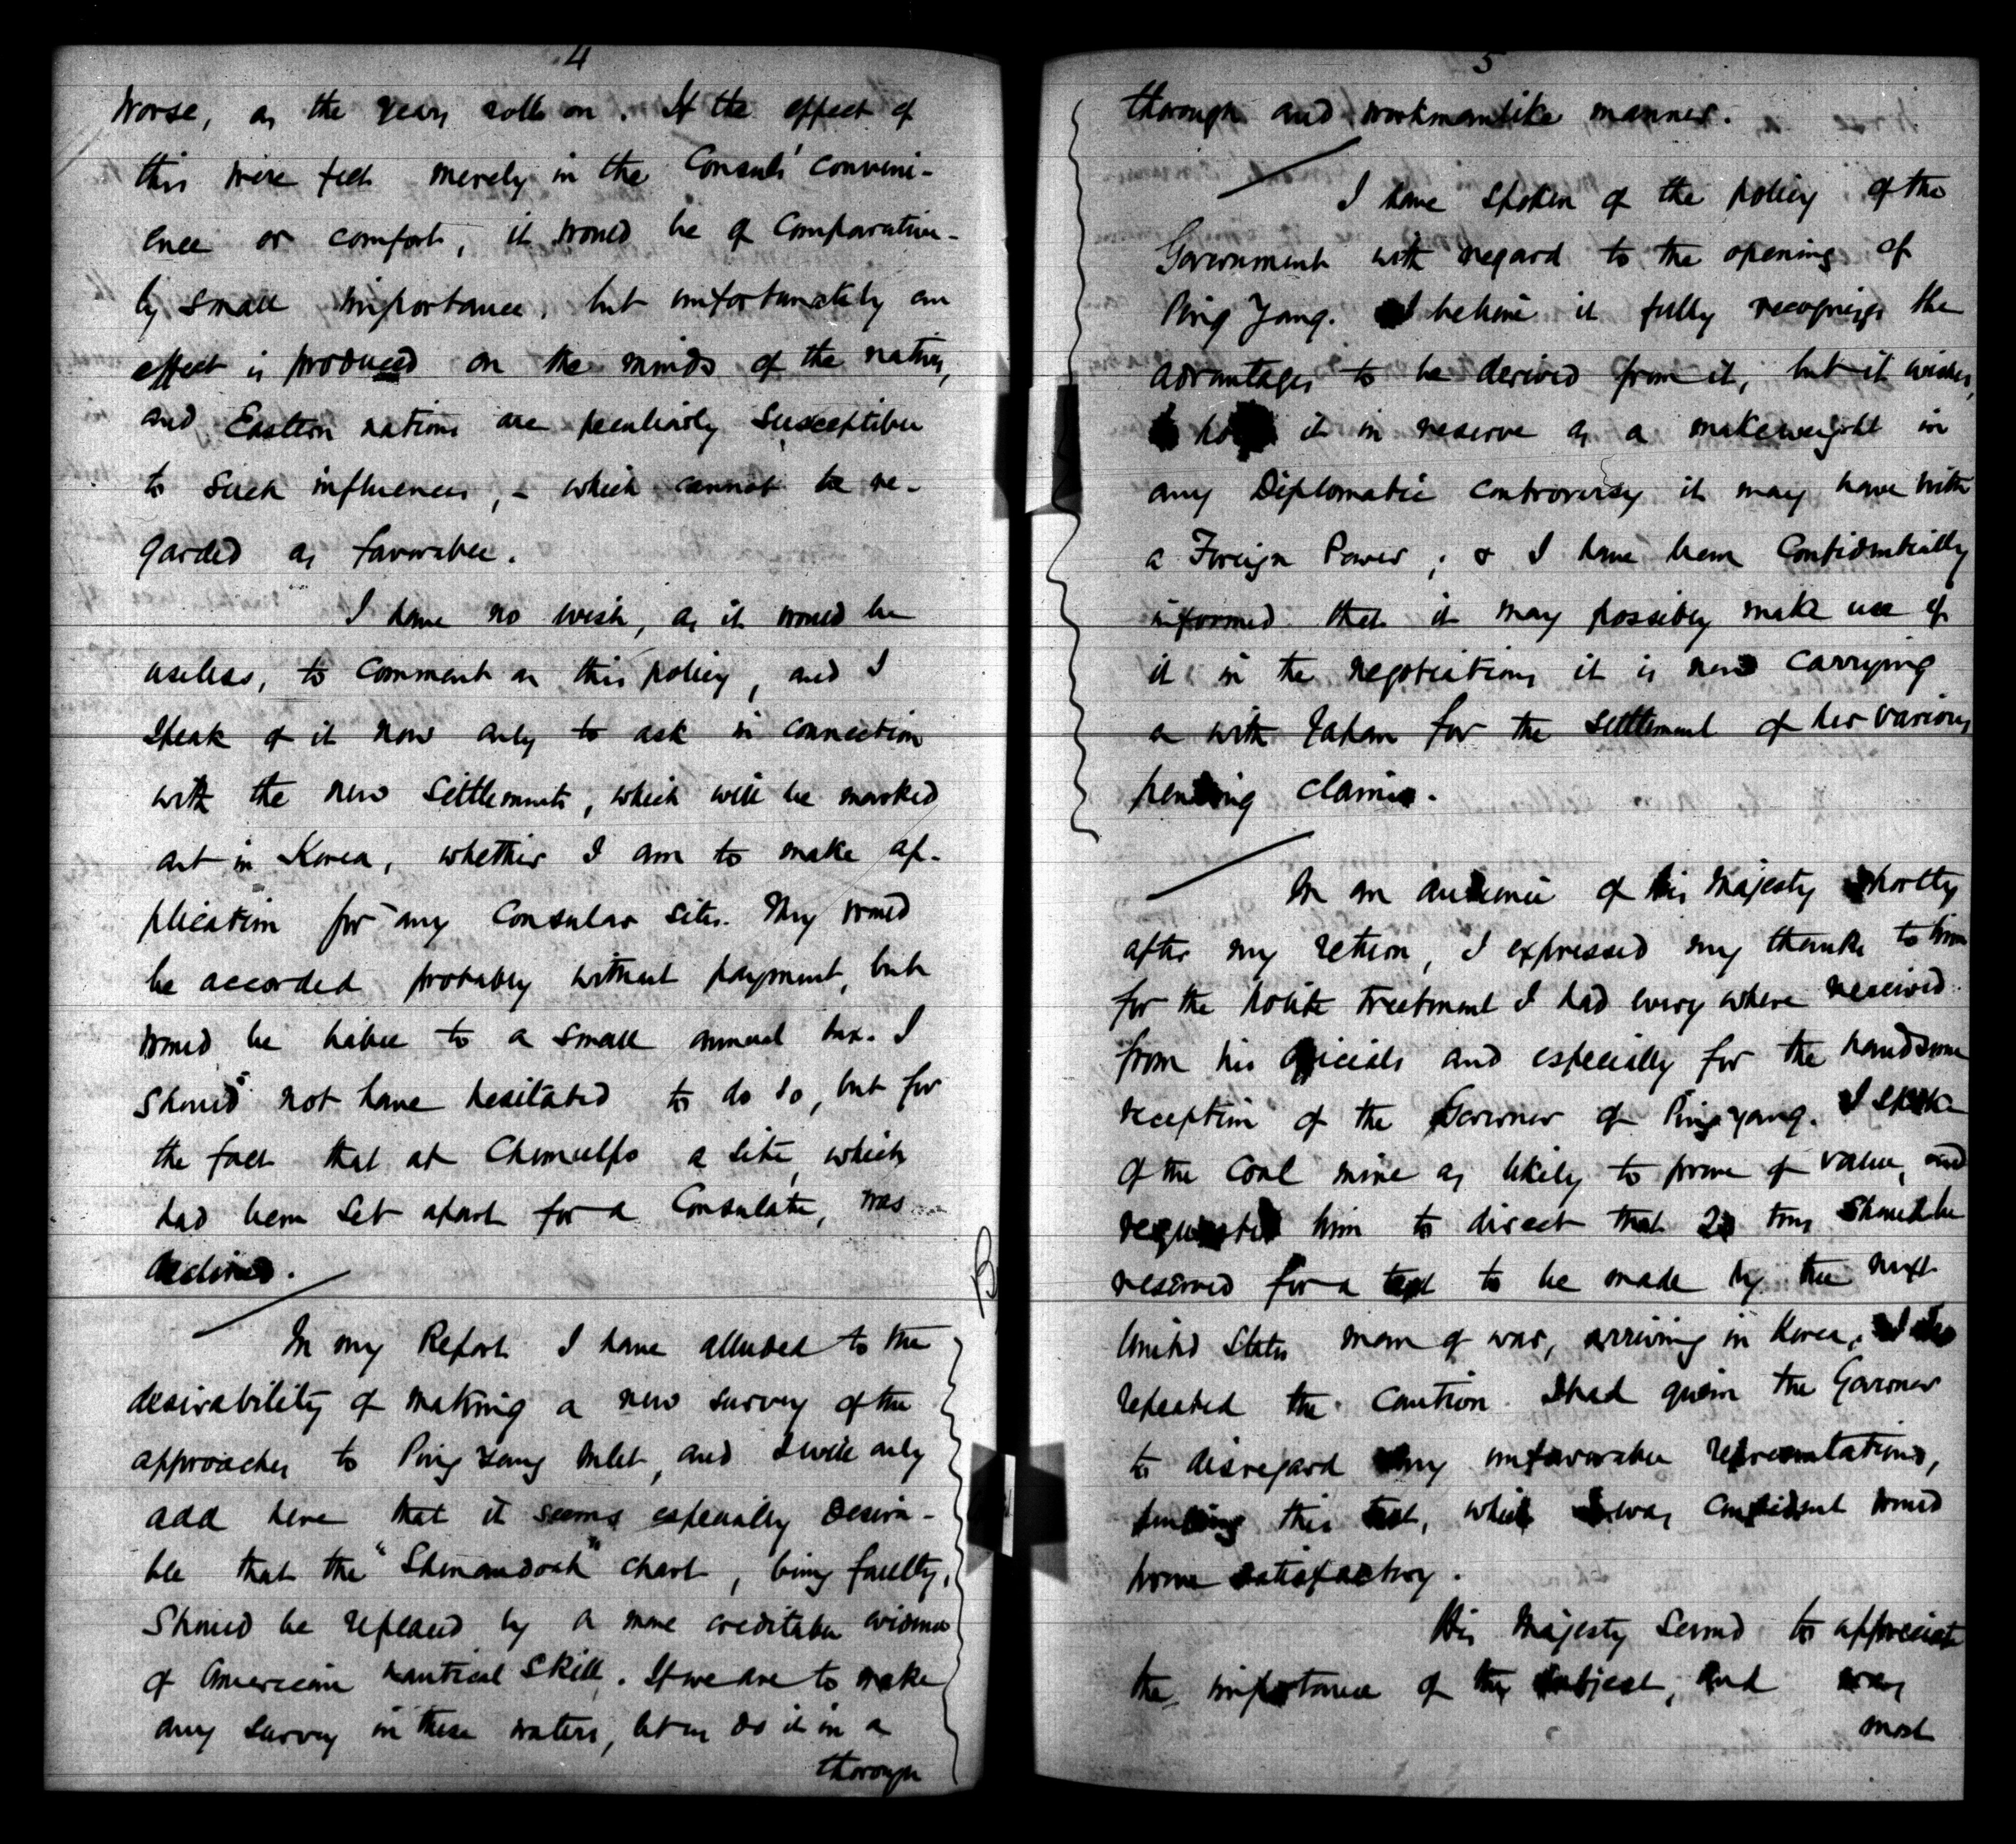 4
worse, as the years rolls on. If the effect of
this were felt merely in the Consuls' conveni-
ence or comfort, it would be of comparative-
ly small importance, but unfortunately an
effect is produced on the minds of the natives,
and Eastern nations are peculiarly susceptible
to such influences, – which cannot be re-
garded as favorable.
I have no wish, as it would be
useless, to comment on this policy, and I
speak of it now only to ask in connection
with the new Settlements, which will be marked
out in Korea, whether I am to make ap-
plication for any Consular sites. They would
be accorded probably without payment, but
would be liable to a small annual tax. I
should not have hesitated to do so, but for
the fact that at Chemulpo a site, which
had been set apart for a Consulate, was
declined.
In my Report I have alluded to the
desirability of making a new survey of the
approaches to Ping Yang Inlet, and I will only
add here that it seems especially desira-
ble that the "Shenandoah" chart, being faulty,
should be replaced by a more creditable evidence
of American nautical skill. If we are to make
any survey in these waters, let us do it in a
thorough
B
5
thorough and workmanlike manner.
I have spoken of the policy of the
Government with regard to the opening of
Ping Yang. I believe it fully recognizes the
advantages to be derived from it, but it wishes
to hold it in reserve as a makeweight in
any Diplomatic controversy it may have with
a Foreign Power; & I have been Confidentially
informed that it may possibly make use of
it in the negotiations it is now carrying
on with Japan for the settlement of her various
pending claims.
In an audience of His Majesty shortly
after my return, I expressed my thanks to him
for the polite treatment I had every where received
from his officials and especially for the handsome
reception of the Governor of Ping Yang. I spoke
of the Coal mine as likely to prove of value, and
requested him to direct that 20 tons should be
reserved for a test to be made by the next
United States man of war, arriving in Korea. I also
repeated the caution I had given the Governor
to disregard any unfavorable representations,
pending this test, which I was confident would
prove satisfactory.
His Majesty seemed to appreciate
the importance of the subject, and was
most